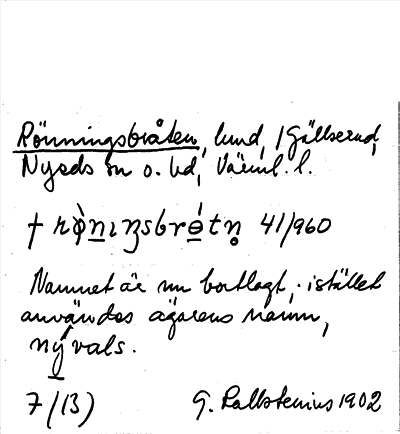 Rönningsbråten, lund, i Gällserud,
Nyeds sn o. hd, Värml. l.
† rø̀nıŋsbrétn̥ 41/960
Namnet är nu bortlagt, istället
användes ägarens namn,
nývals.
7/(13) G. Kallstenius 1902